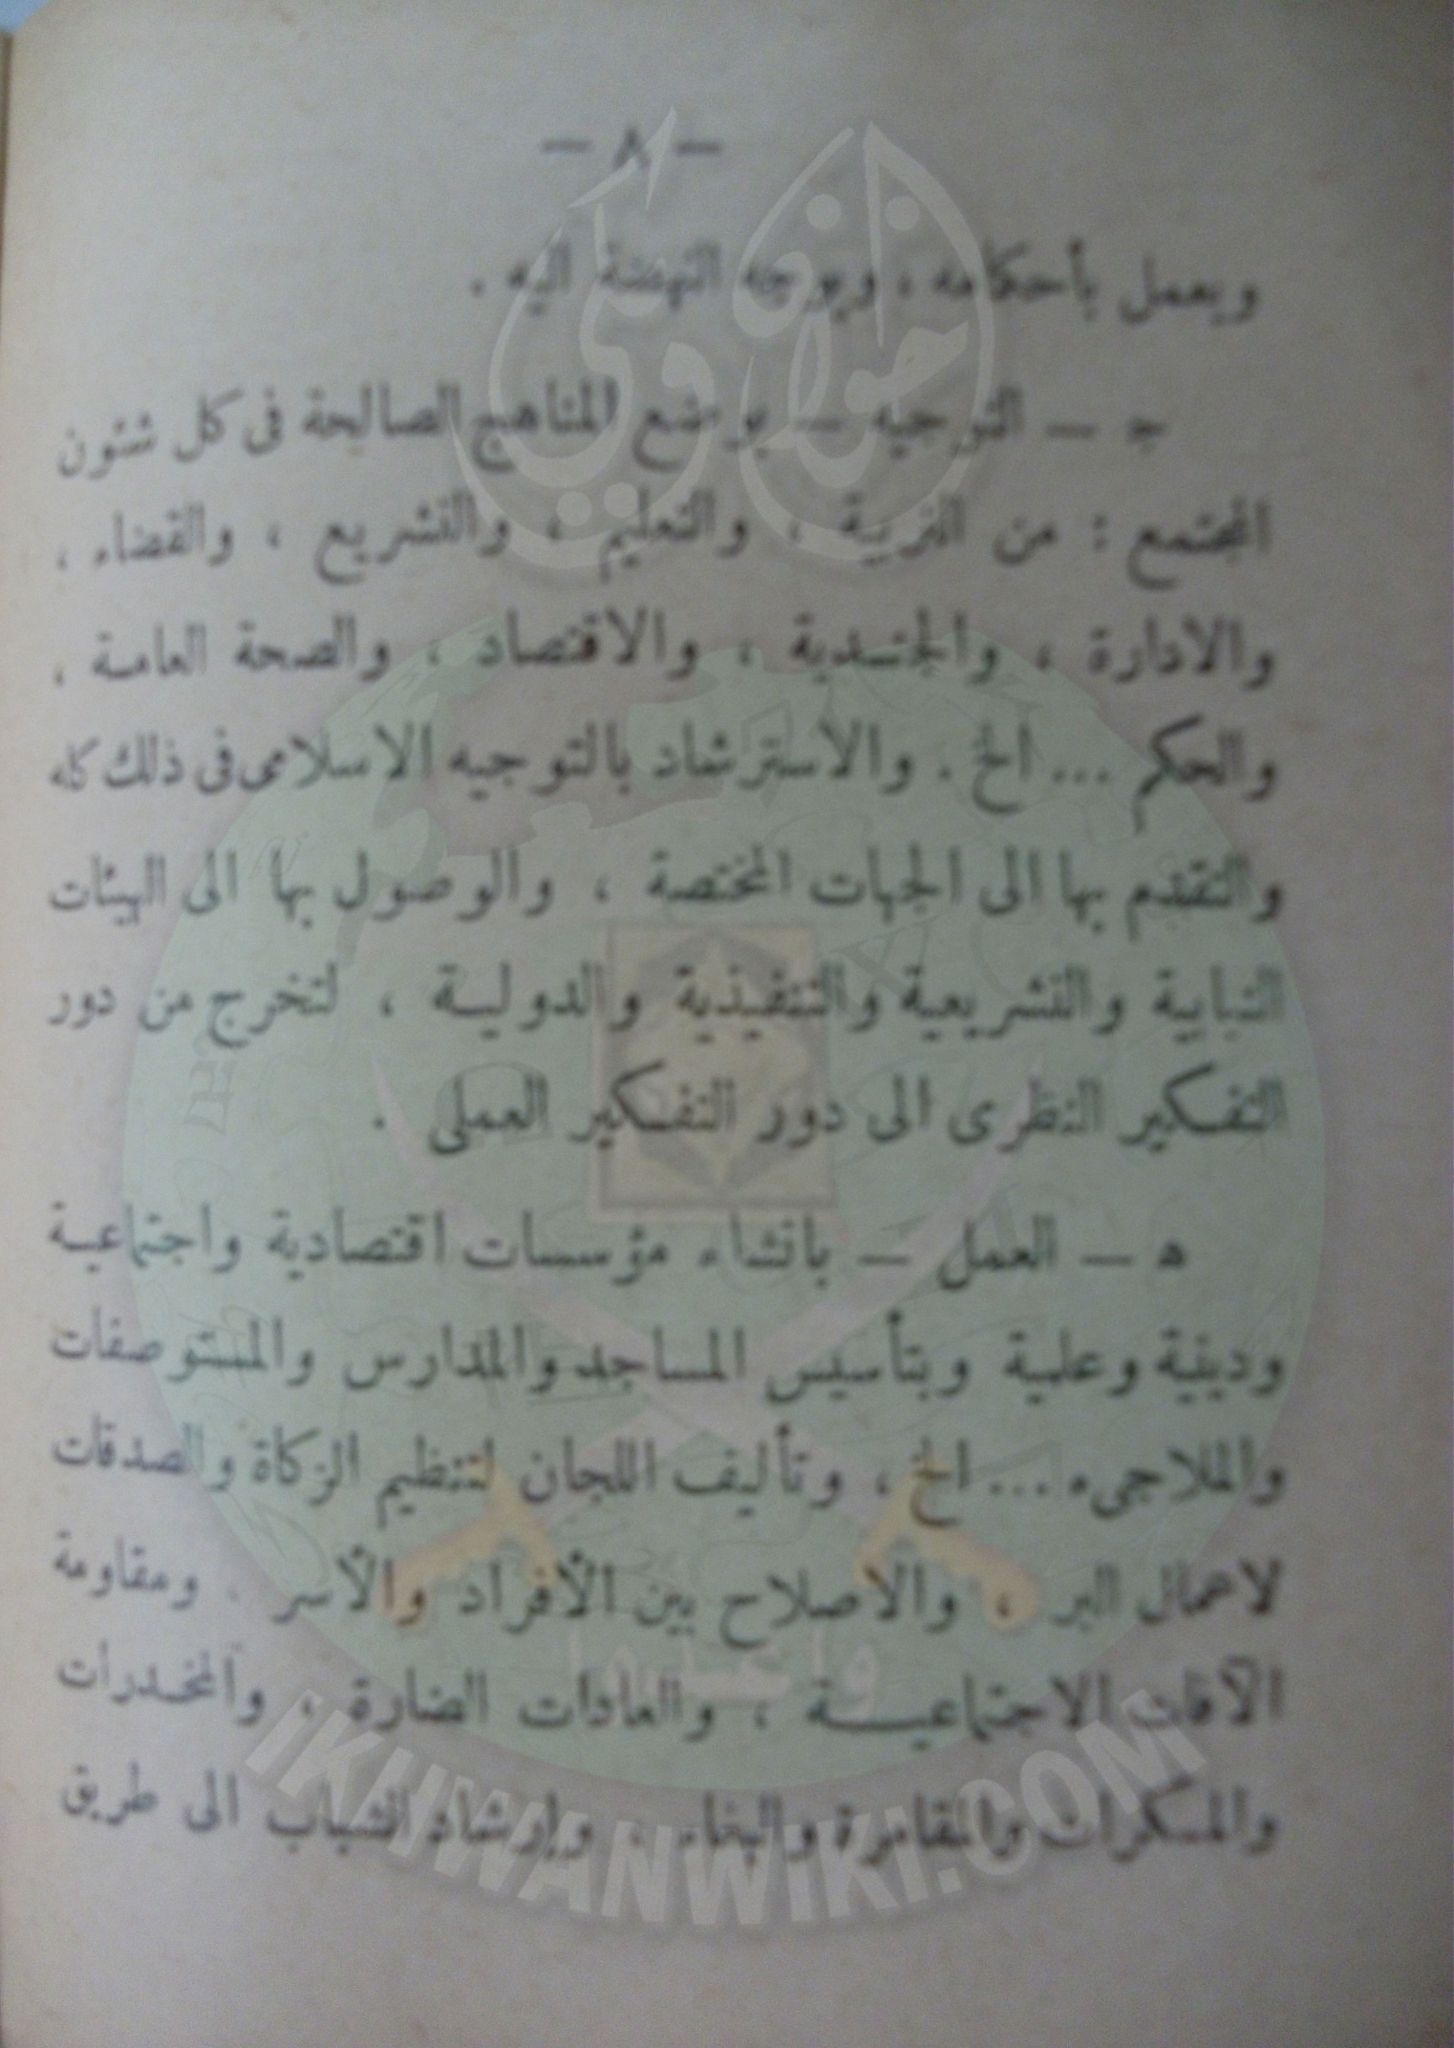 — ٨ —
ويعمل بأحكامه ، ويوجه النهضة اليه .
جـ — التوجيه — بوضع المناهج الصالحة فى كل شئون
المجتمع : من التربية ، والتعليم ، والتشريع ، والقضاء ،
والادارة ، والجندية ، والاقتصاد ، والصحة العامة ،
والحكم ... الخ . والاسترشاد بالتوجيه الاسلامى فى ذلك كله
والتقدم بها الى الجهات المختصة ، والوصول بها الى الهيئات
النيابية والتشريعية والتنفيذية والدولية ، لتخرج من دور
التفكير النظرى الى دور التفكير العملى .
هـ — العمل — بانشاء مؤسسات اقتصادية واجتماعية
ودينية وعلمية وبتأسيس المساجد والمدارس والمستوصفات
والملاجىء ... الخ ، وتأليف اللجان لتنظيم الزكاة والصدقات
لاعمال البر ، والاصلاح بين الأفراد والأسر . ومقاومة
الآفات الاجتماعيـــة ، والعادات الضارة ، والمخدرات
والمسكرات والمقامرة والبغاء ، وإرشاد الشباب الى طريق
إخوان ويكي
وأعدوا
IKHWANWIKI.COM